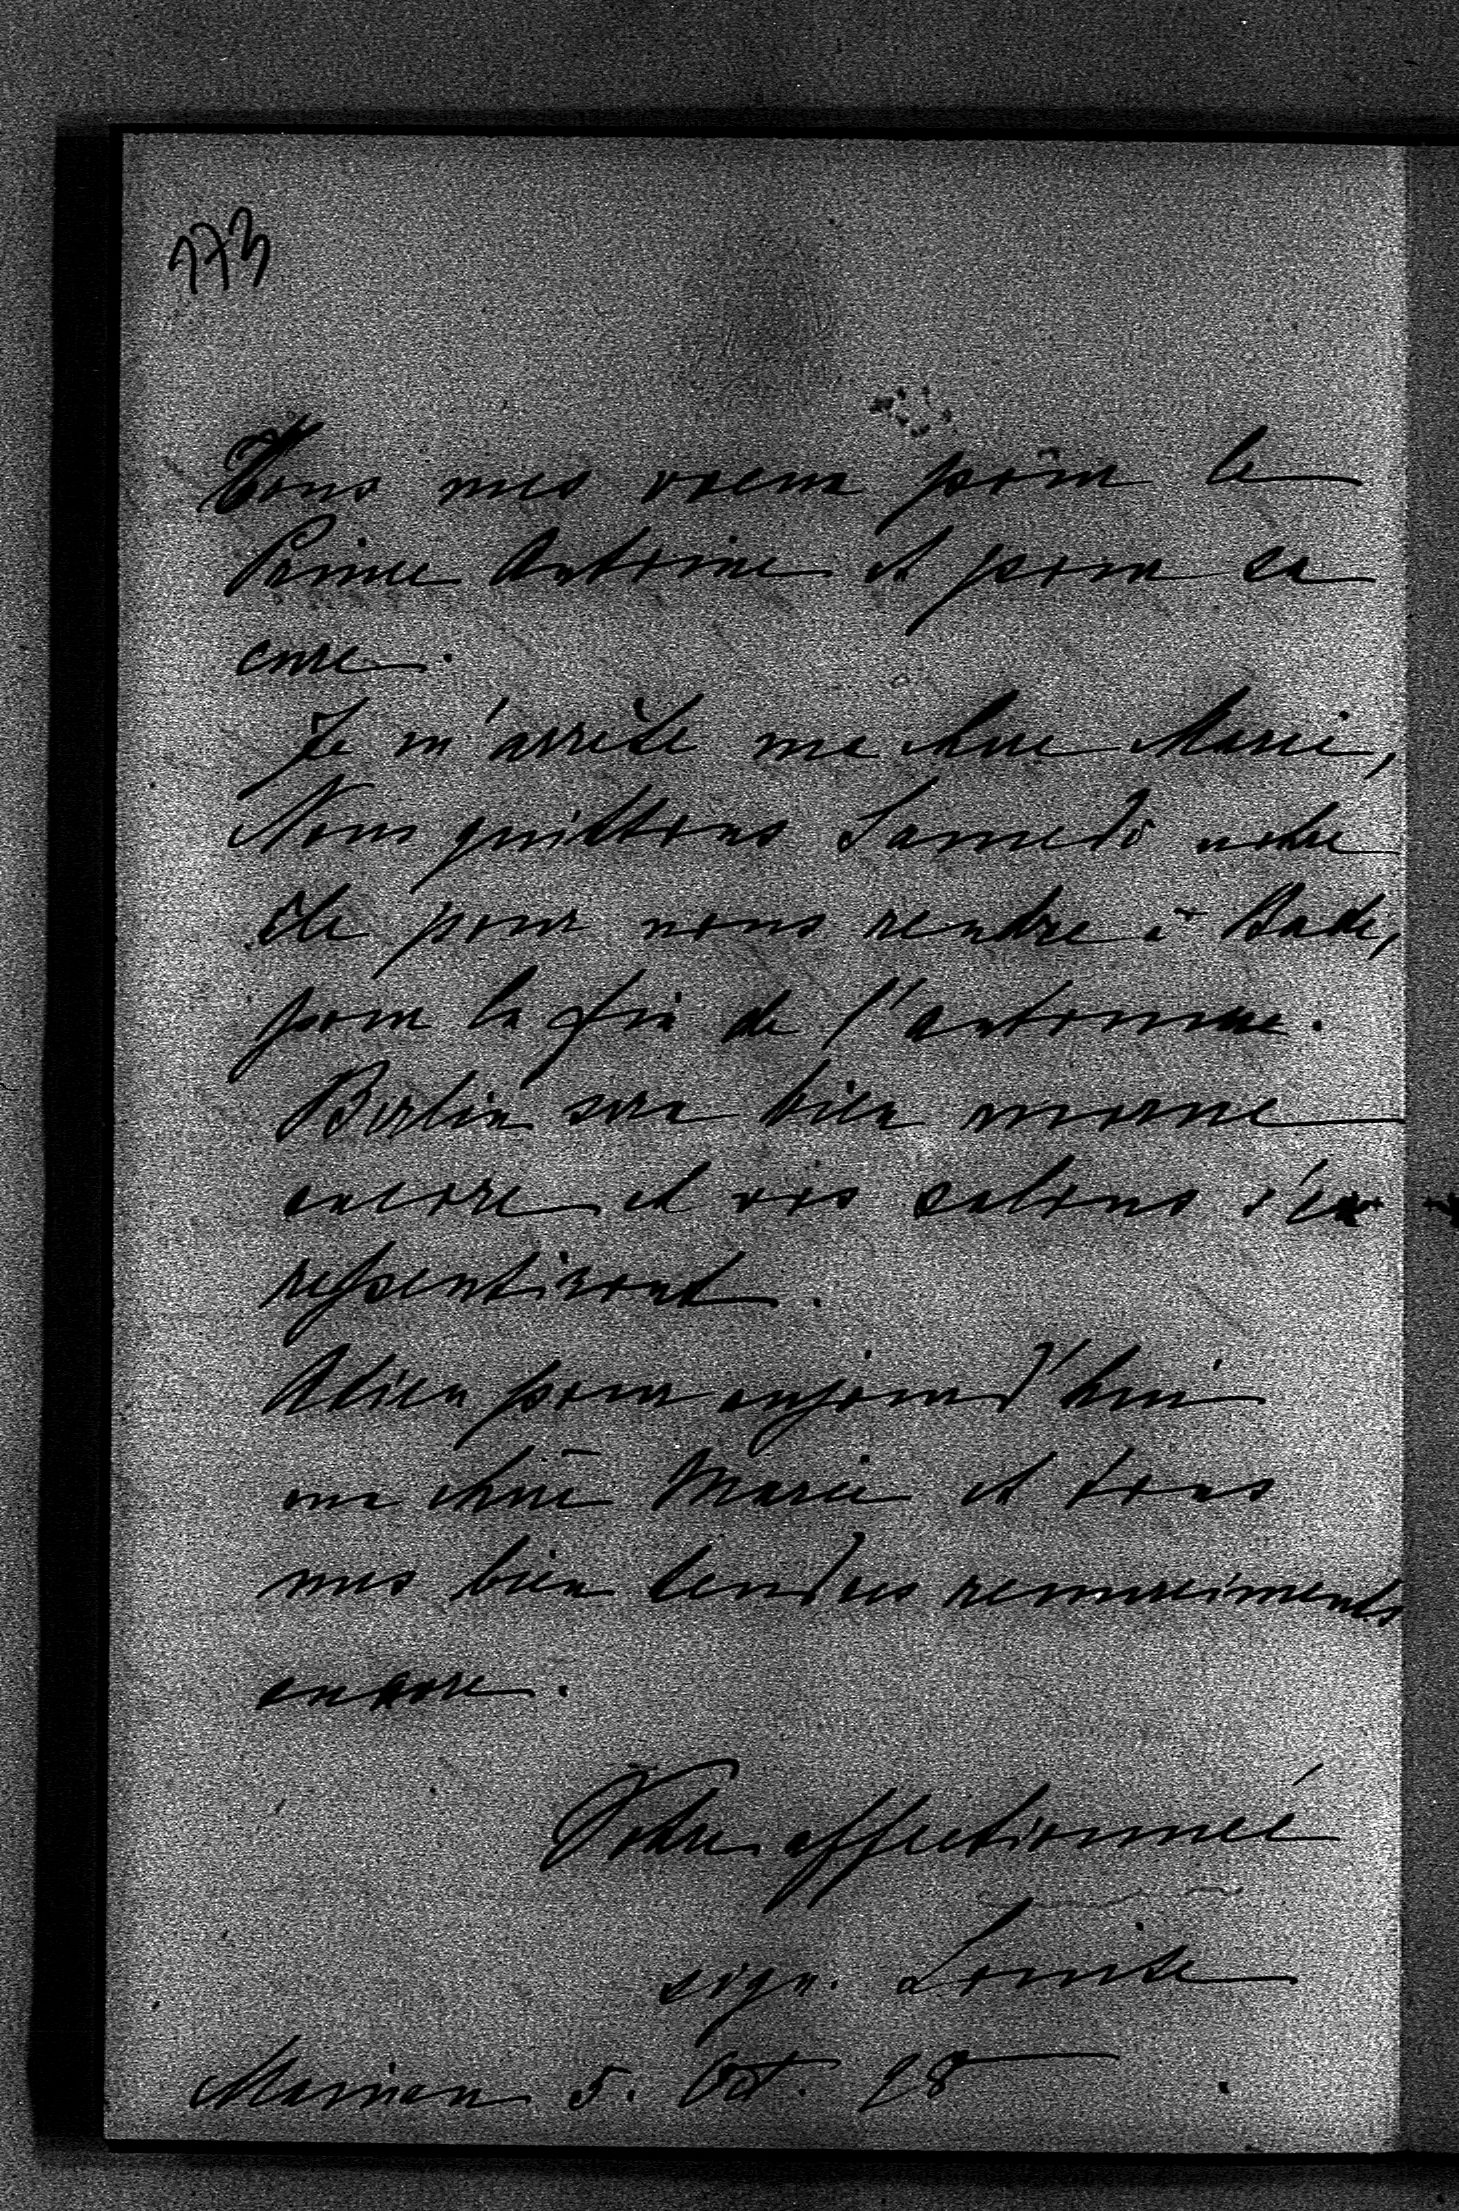 173
Tous mes voeux pour le
Prince Antoine et pour sa
cure.
Je m'arrête ma chère Marie,
Nous quittons Samedi notre
île pour nous rendre à Bade,
pour la fin de l'automne.
Berlin sera bien morne
encore et vos salons s'en
ressentiront.
Adieu pour aujourd'hui
ma chère Marie et tous
mes bien tendres remerciments
encore.
Votre affectionnée
sign. Louise
Mainau 5. Oct. 88